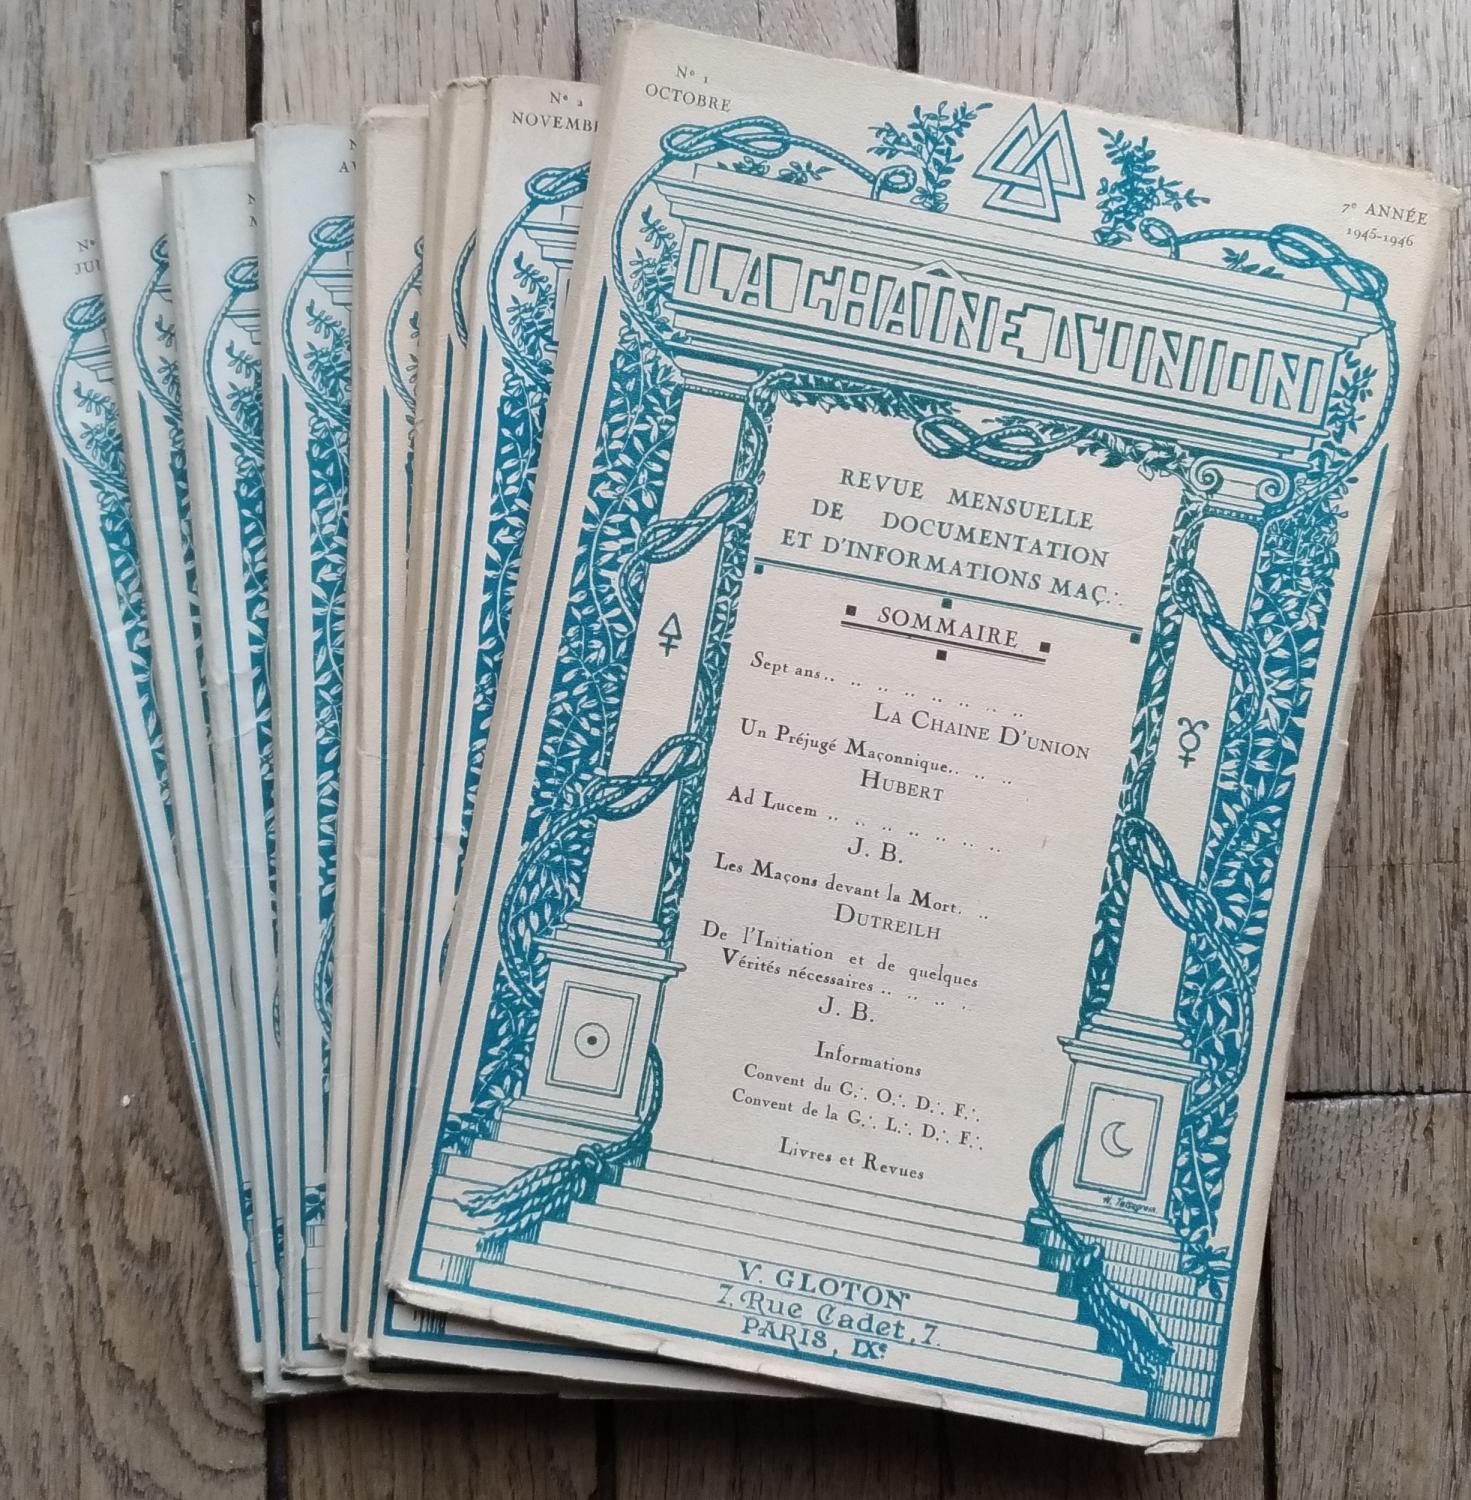 N° 1
OCTOBRE
7e ANNÉE
1945-1946
LA CHAÎNE D'UNION
REVUE MENSUELLE
DE DOCUMENTATION
ET D'INFORMATIONS MAÇ∴
SOMMAIRE
Sept ans.. .. .. .. .. .. .. ..
LA CHAINE D'UNION
Un Préjugé Maçonnique.. .. ..
HUBERT
Ad Lucem .. .. .. .. .. .. ..
J. B.
Les Maçons devant la Mort. ..
DUTREILH
De l'Initiation et de quelques
Vérités nécessaires .. .. .. .
J. B.
Informations
Convent du G∴ O∴ D∴ F∴
Convent de la G∴ L∴ D∴ F∴
Livres et Revues
V. GLOTON
7, Rue Cadet, 7.
PARIS, IXe
N° 2
NOVEMB
N°
JUI